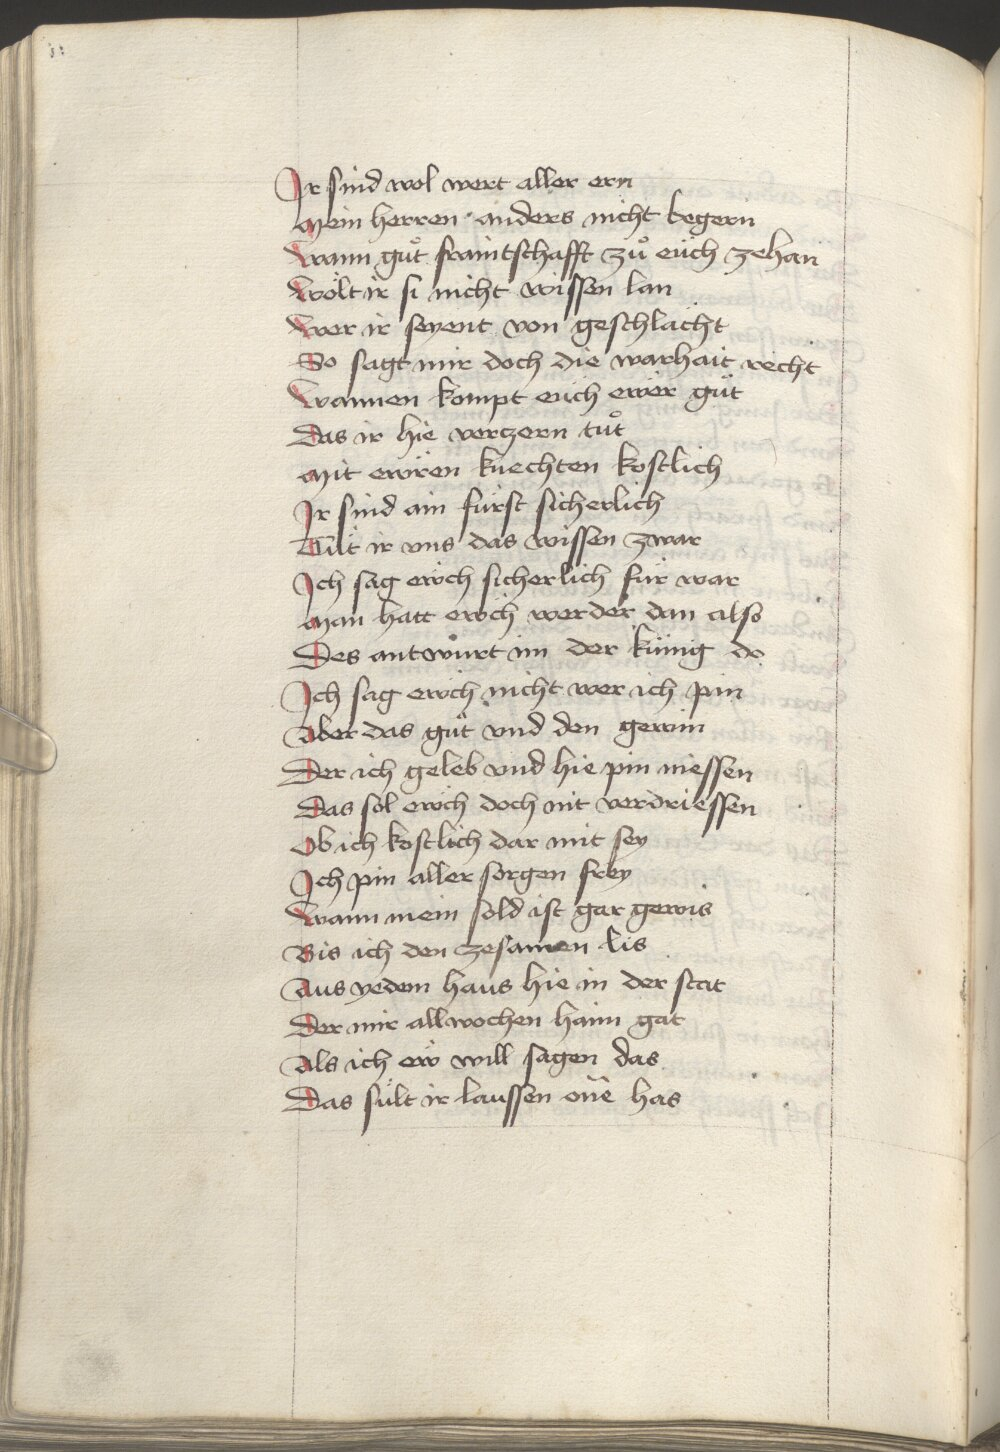 Ir sind wol wert aller ern
Mein herren anders nicht begern
Wann guͦt fraintschafft zuͦ eüch ze han
Wölt ir si nicht wissen lan
Wer ir seyent von geschlächt
So sagt mir doch die warhait recht
Wannen kompt eüch ewer guͦt
Das ir hie verczern tuͦt
Mit ewren knechten kostlich
Ir sind ain fürst sicherlich
Tüt ir vns das wissen zwar
Ich sag ewch sicherlich für war
Man hatt ewch werder dan also
Des antwürt im der künig do
Ich sag ewch nicht wer ich pin
Aber das guͦt vnd den gewin
Der ich geleb vnd hie pin niessen
Das sol ewch doch nit verdriessen
Ob ich kostlich dar mit sey
Ich pin aller sorgen frey
Wann mein sold ist gar gewis
Bis ich den zesamen lis
Aus yedem haus hie in der stat
Der mir all wochen haim gat
Als ich ew will sagen das
Das sült ir laussen one has